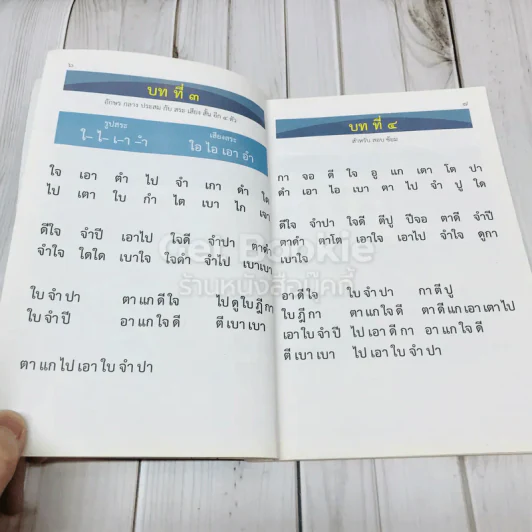 ๖
บท ที่ ๓
อักษร กลาง ประสม กับ สระ เสียง สั้น อีก ๔ ตัว
รูปสระ
ใ- ไ- เ-า -ำ
เสียงสระ
ใอ ไอ เอา อำ
ใจ เอา ตำ ไป จำ เกา ดำ ใด
ไป เตา ใบ กำ ไต เบา ไก เจา
ดีใจ จำปี เอาไป ใจดี จำปา ตาดำ
จำใจ ไตใด เบาใจ ใจดำ จำไป เบาเบา
ใบ จำ ปา ตา แก ดี ใจ ไป ดู ใบ ฎี กา
ใบ จำ ปี อา แก ใจ ดี ตี เบา เบา
ตา แก ไป เอา ใบ จำ ปา
๗
บท ที่ ๔
สำหรับ สอบ ซ้อม
กา จอ ดี ใจ อู แก เตา โต ปา
ดำ เอา ไอ เบา ตา ไป จำ ปู ใด
ดีใจ จำปา ใจดี ตีปู ปีจอ ตาดี จำปี
ตาดำ ตาโต เอาใจ เอาไป จำใจ ดูกา
เบาใจ
อา ดี ใจ ใบ จำ ปา กา ตี ปู
ใบ ฎี กา ตา แก ใจ ดี ตา ดี แก เอา เตา ไป
เอา ใบ จำ ปี ไป เอา ดี กา อา แก ใจ ดี
ตี เบา เบา ไป เอา ใบ จำ ปา
Get Bookie
ร้านหนังสือบุ๊คกี้